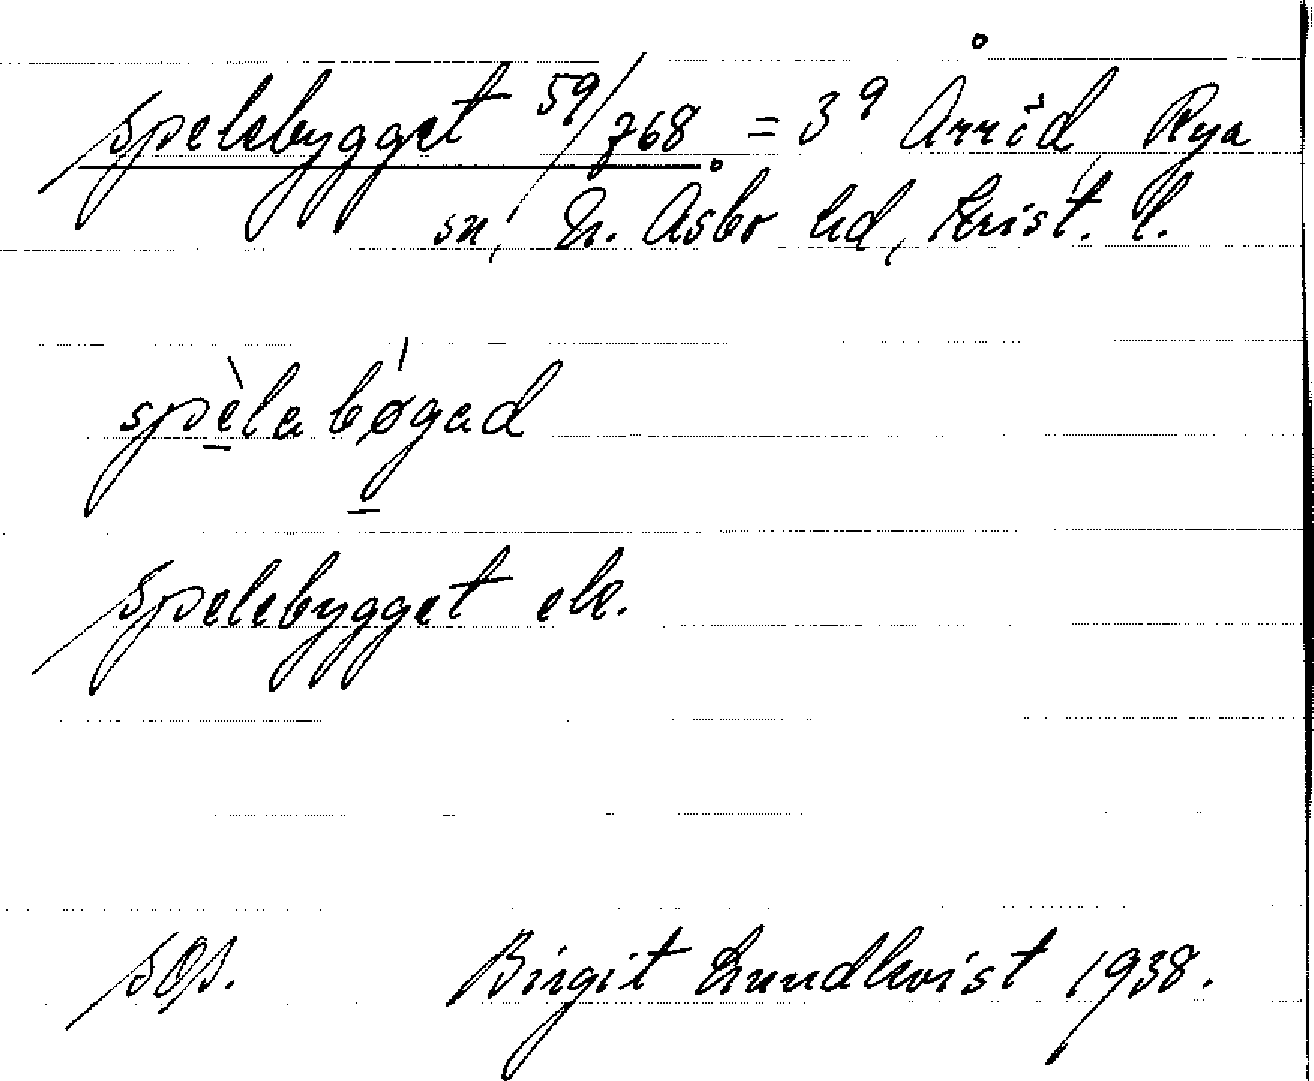 Spelebygget 59/768 = 3⁹ Årröd, Rya
sn, N. Åsbo hd, Krist. l.
spèlabø̀gad
Spelebygget ek.
SOS. Birgit Lundkvist 1938.